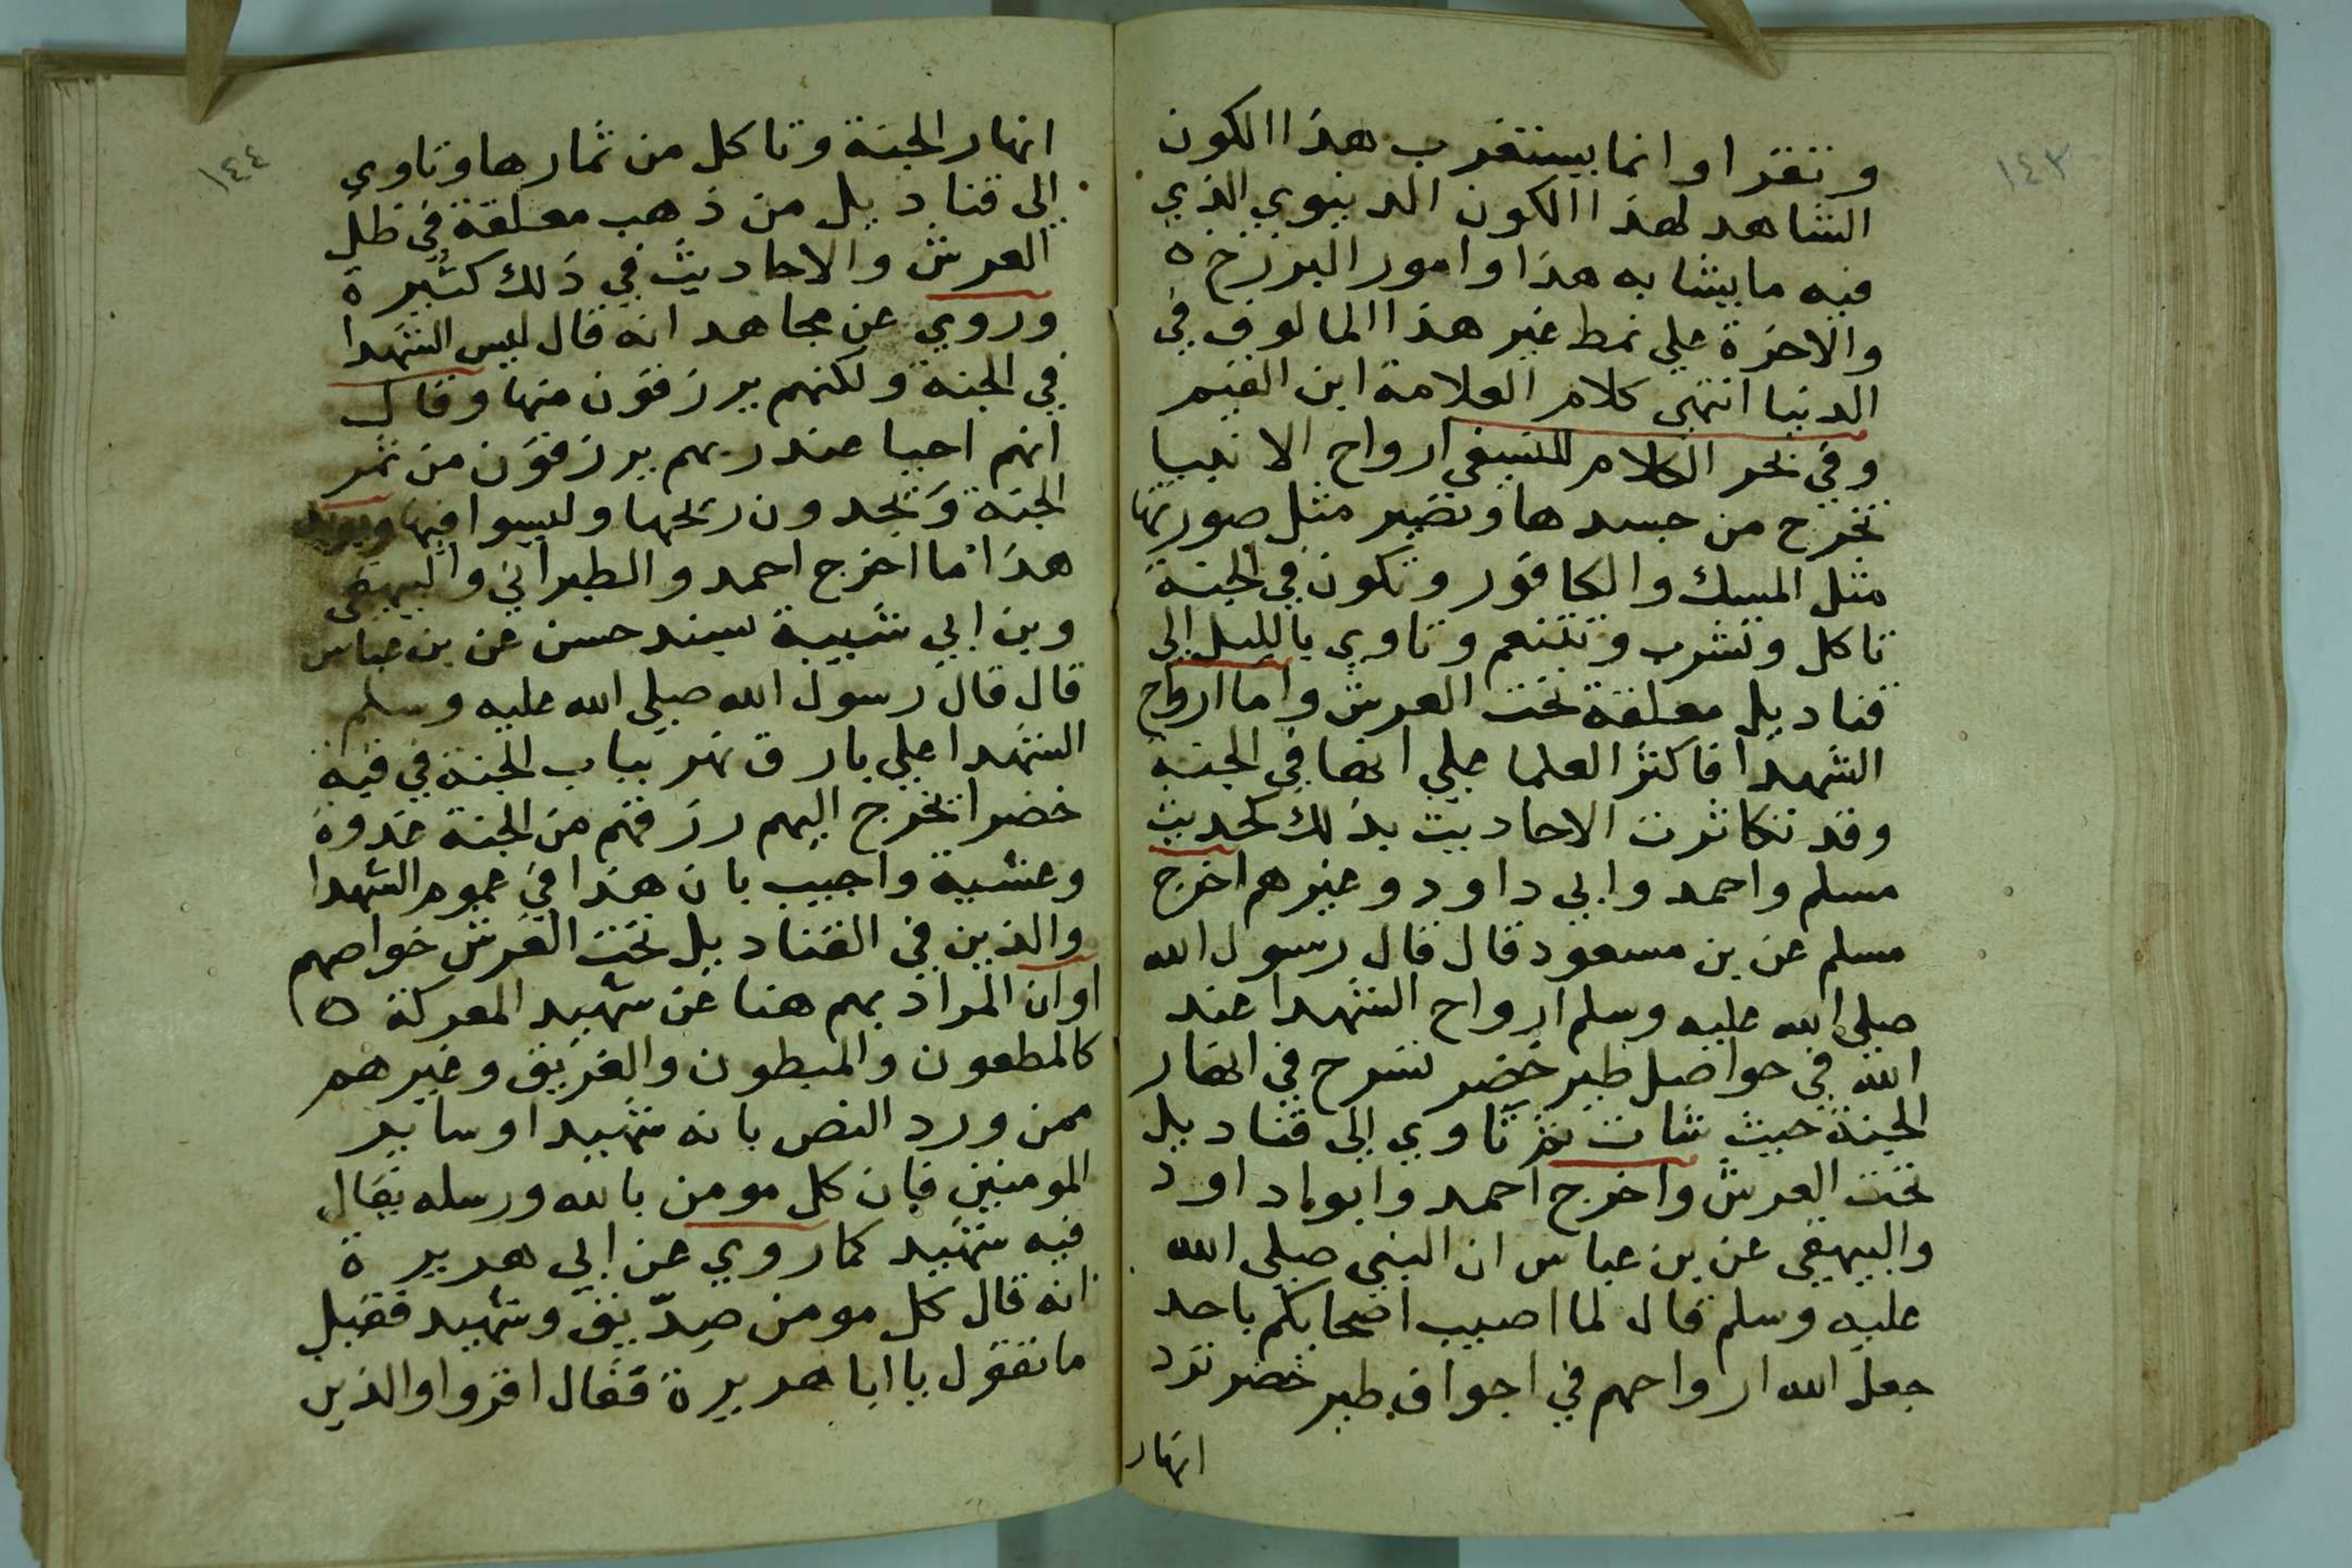 ١٤٣
وتقرا وانما يستغرب هذا الكون
الشاهد لهذا الكون الدنيوي الذي
فيه ما يشابه هذا وامور البرزخ ه
والاخرة علي نمط غير هذا المالوف في
الدنيا انتهي كلام العلامة ابن القيم
وفي بحر الكلام للنسفي ارواح الانبيا
تخرج من جسدها وتصير مثل صورتها
مثل المسك والكافور وتكون في الجنة
تاكل وتشرب وتتنعم وتاوي بالليل الي
قناديل معلقة تحت العرش واما ارواح
الشهدا فاكثر العلما علي انها في الجنة
وقد تكاثرت الاحاديث بذلك لحديث
مسلم واحمد وابي داود وغيرهم اخرج
مسلم عن بن مسعود قال قال رسول الله
صلي الله عليه وسلم ارواح الشهدا عند
الله في حواصل طير خضر تسرح في انهار
الجنة حيث شات ثم تاوي الي قناديل
تحت العرش واخرج احمد وابوداود
والبيهقي عن بن عباس ان النبي صلي الله
عليه وسلم قال لما اصيب اصحابكم باحد
جعل الله ارواحهم في اجواف طير خضر ترد
انهار
١٤٤
انهار الجنة وتاكل من ثمارها وتاوي
الي قناديل من ذهب معلقة في ظل
العرش والاحاديث في ذلك كثيرة
وروي عن مجاهد انه قال ليس الشهدا
في الجنة ولكنهم يرزقون منها وقال
انهم احيا عند ربهم يرزقون من ثمر
الجنة ويجدون ريحها وليسوا فيها ويويد
هذا ما اخرج احمد والطبراني والبيهقي
وبن ابي شيبة بسند حسن عن بن عباس
قال قال رسول الله صلي الله عليه وسلم
الشهدا علي بارق نهر بباب الجنة في قبة
خضرا تخرج اليهم رزقهم من الجنة غدوة
وعشية واجيب بان هذا في عموم الشهدا
والذين في القناديل تحت العرش خواصهم
اوان المراد بهم هنا عن شهيد المعركة ه
كالمطعون والمبطون والغريق وغيرهم
ممن ورد النص بانه شهيد او ساير
المومنين فان كل مومن بالله ورسله يقال
فيه شهيد كما روي عن ابي هريرة
انه قال كل مومن صدّيق وشهيد فقيل
ما تقول يا ابا هريرة فقال اقروا والذين